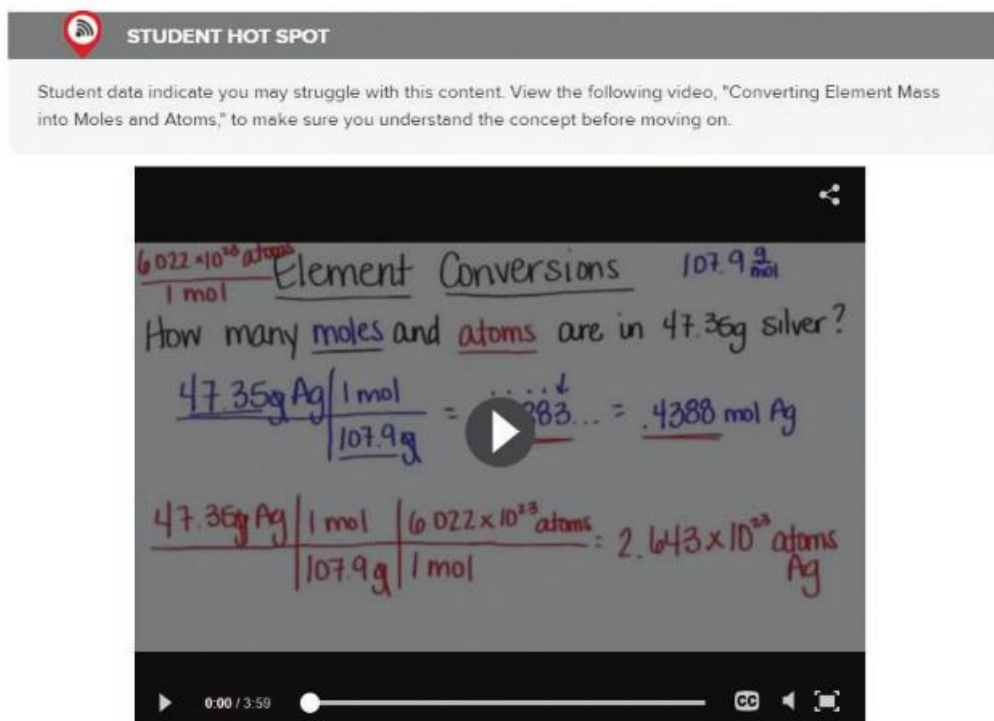 STUDENT HOT SPOT
Student data indicate you may struggle with this content. View the following video, "Converting Element Mass
into Moles and Atoms," to make sure you understand the concept before moving on.
6 022 ×10²³ atoms
1 mol
Element Conversions
107.9 g
mol
How many moles and atoms are in 47.35g silver?
47.35g Ag | 1 mol
107.9g
= 383... = .4388 mol Ag
47.35g Ag | 1 mol | 6 022 x 10²³ atoms
107.9g | 1 mol
= 2.643 x 10²³ atoms
Ag
0:00 / 3:59
CC